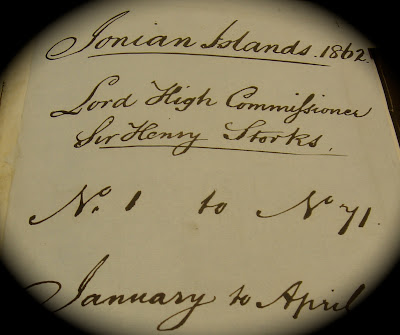 Ionian Islands. 1862.
Lord High Commissioner
Sir Henry Storks.
No. 1 to No 71.
January to April